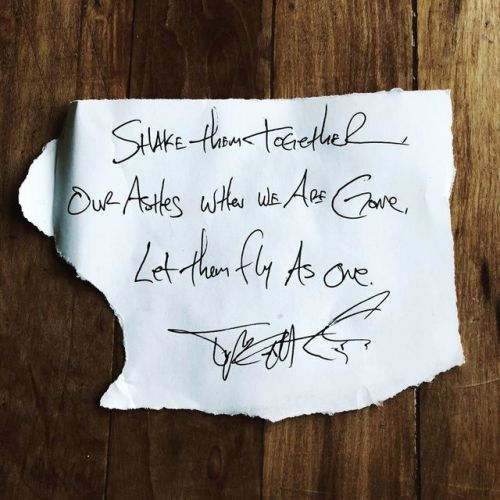 Shake them together,
Our Ashes when we Are Gone,
Let them fly As one.